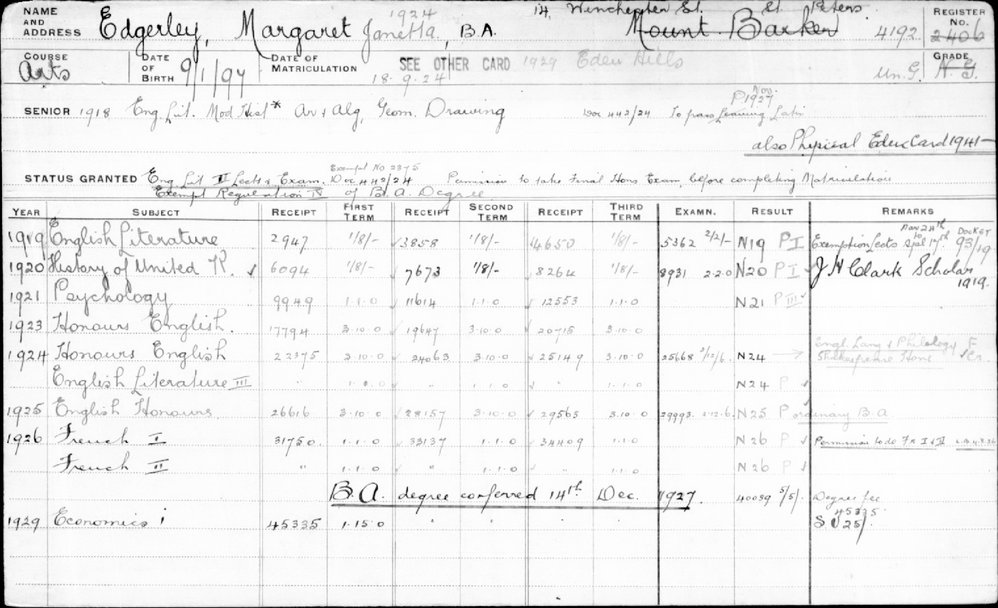 NAME AND ADDRESS Edgerley, Margaret Janetta, B.A. 1924 14, Winchester St. St. Peters Mount Barker 4192 REGISTER No. 2406
COURSE Arts DATE OF BIRTH 9/1/97 DATE OF MATRICULATION 18·9·24 SEE OTHER CARD 1929 Eden Hills Un.G. GRADE N.G.
SENIOR 1918 Eng. Lit. Mod Hist* Ar & Alg, Geom. Drawing 442/24 To pass Leaving Latin Nov. 1927
also Physical Educ Card 1941-
STATUS GRANTED Eng Lit II Lects & Exam. Exempt No 2375 Dec 442/24 Permission to take Final Hons Exam, before completing Matriculation
Exempt Regulation IV of B.A. Degree
YEAR SUBJECT RECEIPT FIRST TERM RECEIPT SECOND TERM RECEIPT THIRD TERM EXAMN. RESULT REMARKS
1919 English Literature 2947 1/8/- 3858 1/8/- 4650 1/8/- 5362 2/2/- N19 P I Exemption Lects to Docket 93/19
1920 History of United K. 6094 1/8/- 7673 1/8/- 8264 1/8/- 8931 2·2·0 N20 P I J H Clark Scholar 1919.
1921 Psychology 9949 1·1·0 11614 1·1·0 12553 1·1·0 N21 P III
1923 Honours English. 17794 3·10·0 19647 3·10·0 20715 3·10·0
1924 Honours English 22375 3·10·0 24063 3·10·0 25149 3·10·0 25668 2/12/6 N24 Engl Lang & Philology F Shakespeare Hons
English Literature III " " " N24 P
1925 English Honours 26616 3·10·0 28157 3·10·0 29565 3·10·0 29993 1·12·6 N25 P ordinary B.A
1926 French I 31750 1·1·0 33137 1·1·0 34409 1·1·0 N26 P Permission to do Fr I & II
French II " 1·1·0 " 1·1·0 " 1·1·0 N26 P
B.A. degree conferred 14th Dec. 1927. 40039 5/5/- Degree fee
1929 Economics i 45335 1·15·0 " " " 45335 S U 25/-